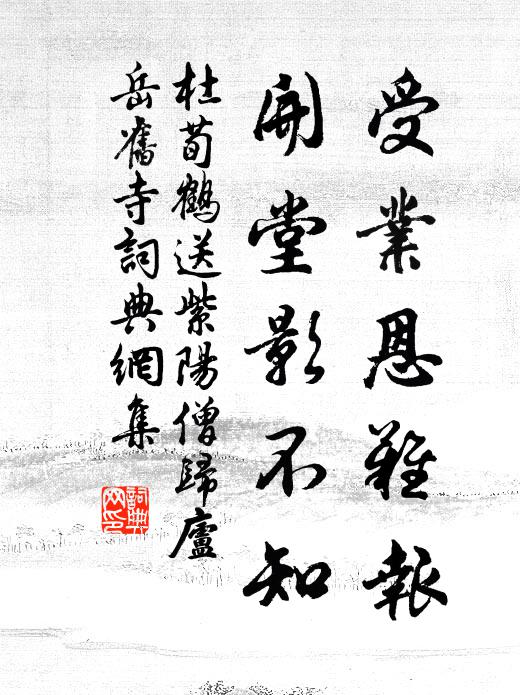 受業恩難報
開堂影不知
杜荀鶴送紫陽僧歸廬
岳舊寺詞典網集
詞典网印